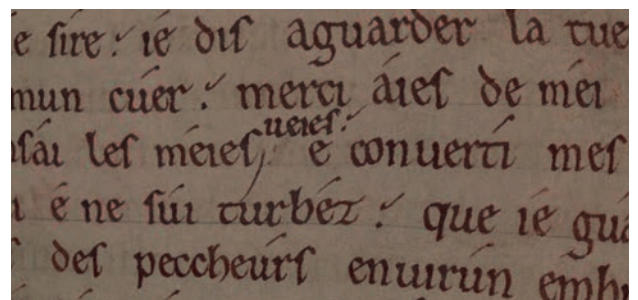 e ſire : ié díſ aguarder la tue
mun cúer : merci áieſ de méi
ſái leſ méieſ ueieſ : é conuerti meſ
ı é ne ſúi turbéz : que ié guá
ſ deſ peccheúrſ enuirún emb